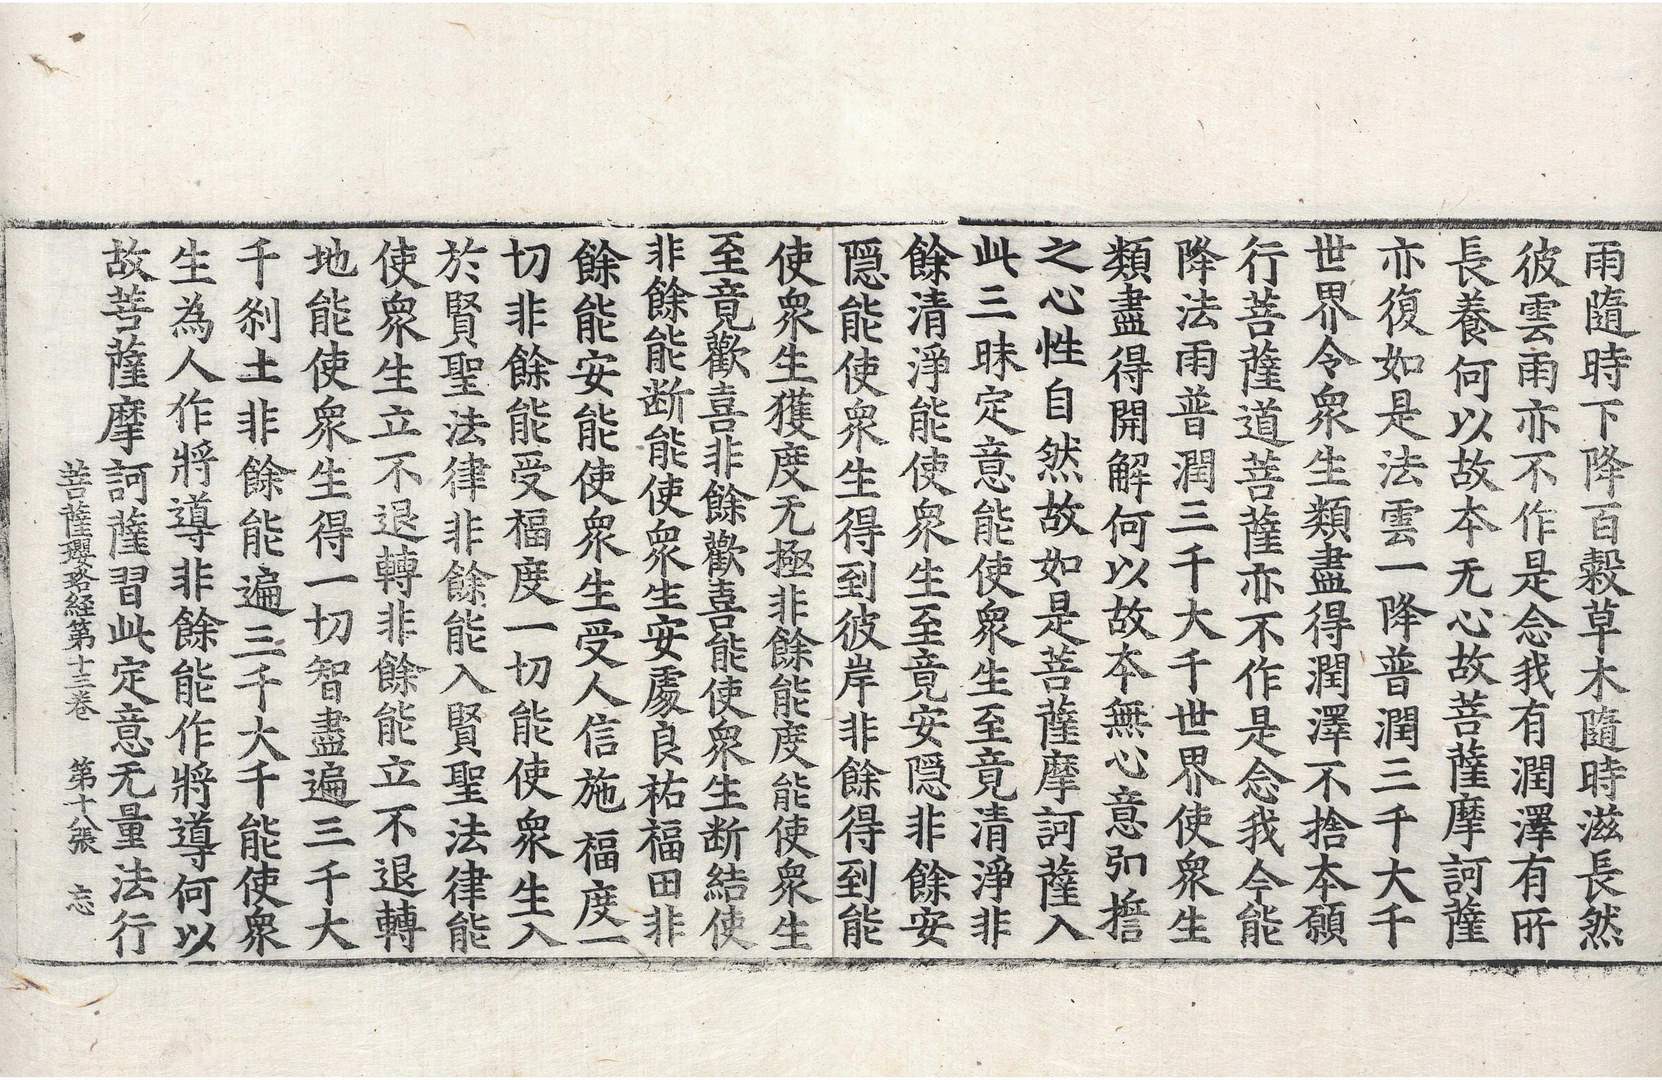 雨隨時下降百穀草木隨時滋長然
彼雲雨亦不作是念我有潤澤有所
長養何以故本无心故菩薩摩訶薩
亦復如是法雲一降普潤三千大千
世界令衆生類盡得潤澤不捨本願
行菩薩道菩薩亦不作是念我今能
降法雨普潤三千大千世界使衆生
類盡得開解何以故本無心意弘誓
之心性自然故如是菩薩摩訶薩入
此三昧定意能使衆生至竟清淨非
餘清淨能使衆生至竟安隱非餘安
隱能使衆生得到彼岸非餘得到能
使衆生獲度无極非餘能度能使衆生
至竟歡喜非餘歡喜能使衆生断結使
非餘能断能使衆生安處良祐福田非
餘能安能使衆生受人信施福度一
切非餘能受福度一切能使衆生入
於賢聖法律非餘能入賢聖法律能
使衆生立不退轉非餘能立不退轉
地能使衆生得一切智盡遍三千大
千刹土非餘能遍三千大千能使衆
生為人作將導非餘能作將導何以
故菩薩摩訶薩習此定意无量法行
菩薩瓔珞経第十三卷 第十八張 忘